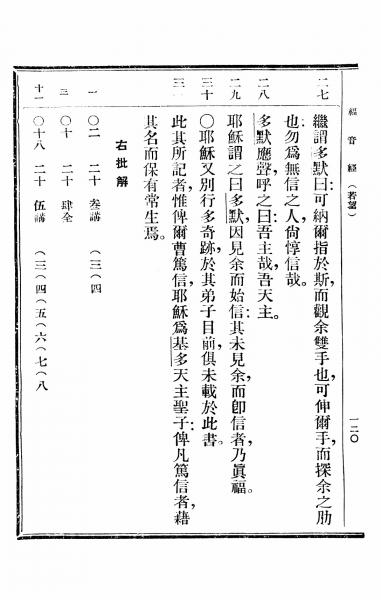 福音經（若望）
一二〇
二七
繼謂多默曰：可納爾指於斯，而觀余雙手也。可伸爾手，而探余之肋
也：勿爲無信之人，尙惇信哉。
二八
多默應聲，呼之曰：吾主哉，吾天主。
二九
耶穌謂之曰：多默，因見余而始信：其未見余，而卽信者，乃眞福。
三十
〇耶穌又別行多奇跡，於其弟子目前，俱未載於此書。
三一
此其所記者，惟俾爾曹篤信，耶穌爲基多天主聖子：俾凡篤信者，藉
其名而保有常生焉。
右批解
一 〇二 二十 叁講 （三（四
三 〇十 二十 肆全
十一 〇十八 二十 伍講 （三（四（五（六（七（八